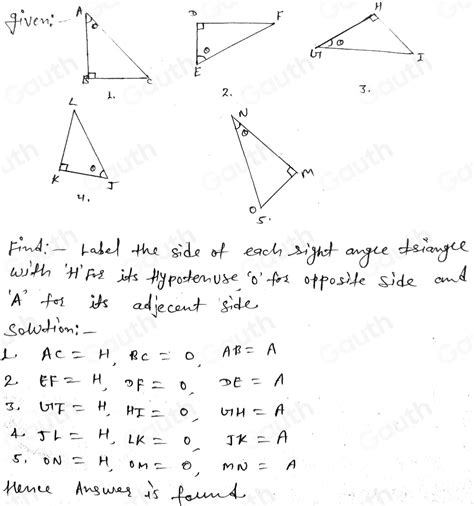 given:-
A
θ
B
C
1.
D
F
θ
E
2.
H
G
θ
I
3.
L
K
θ
J
4.
N
θ
M
O
5.
Find:- Label the side of each right angle triangle
with 'H' For its Hypotenuse 'O' for opposite side and
'A' for its adjecent side
Solution:-
1. AC = H, BC = O, AB = A
2. EF = H, DF = O, DE = A
3. GI = H, HI = O, GH = A
4. JL = H, LK = O, JK = A
5. ON = H, OM = O, MN = A
Hence Answer is found
Gauth